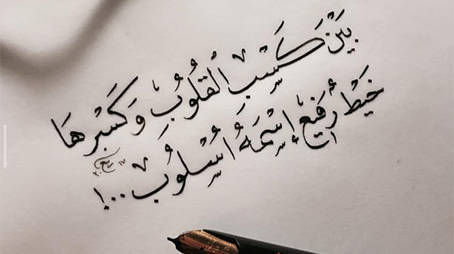 بَيْن كَسْبِ القُلُوُبِ وَكَسْرِهَا
خَيْطٌ رَفِيْعٌ إسْمَهُ أُسْلُوُبْ...!